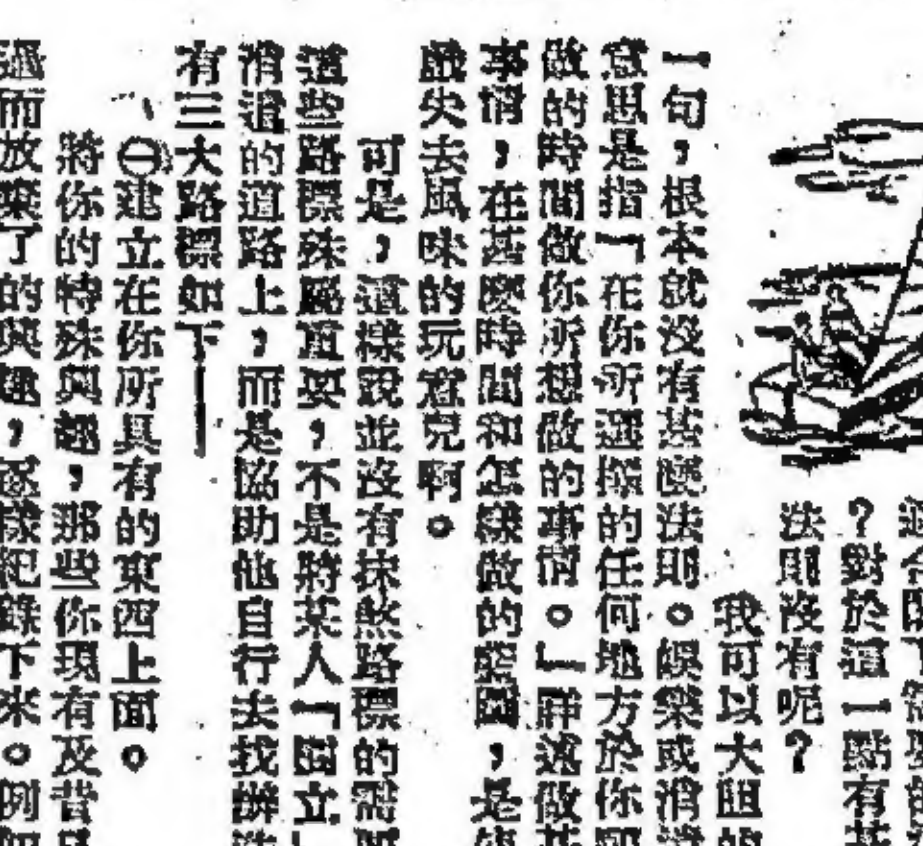 ？對於這一點有甚
法則沒有呢？
我可以大胆的
一句，根本就沒有甚麼法則。娛樂或消遣
意思是指「在你所選擇的任何地方於你所
做的時間做你所想做的事情。」詳述做某
事情，在甚麼時間和怎樣做的範圍，是使
戲失去風味的玩意兒啊。
可是，這樣說並沒有抹煞路標的需要
這些路標殊屬重要，不是將某人「固立」
消遣的道路上，而是協助他自行去找辦法
有三大路標如下——
㊀建立在你所具有的東西上面。
將你的特殊興趣，那些你現有及昔日
過而放棄了的興趣，逐樣紀錄下來。例如